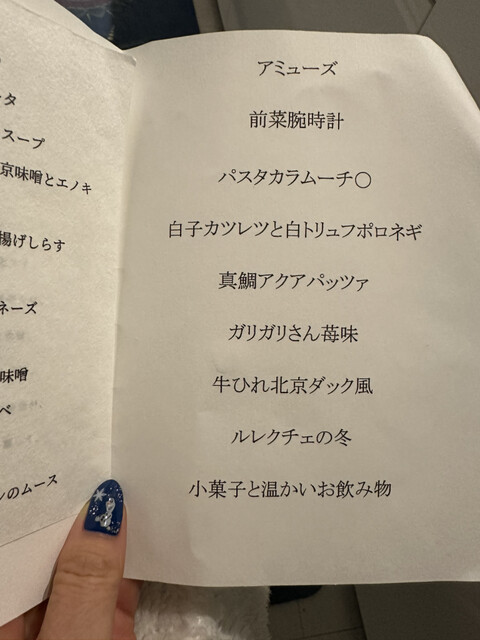 タ
スープ
京味噌とエノキ
揚げしらす
ネーズ
味噌
べ
のムース
アミューズ
前菜腕時計
パスタカラムーチ〇
白子カツレツと白トリュフポロネギ
真鯛アクアパッツァ
ガリガリさん苺味
牛ひれ北京ダック風
ルレクチェの冬
小菓子と温かいお飲み物